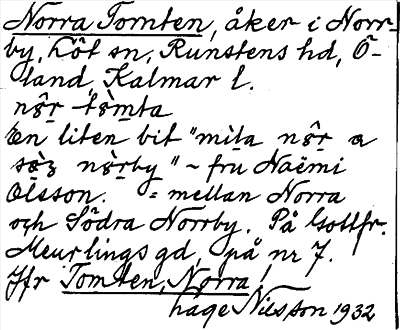 Norra Tomten, åker i Norr-
by, Löt sn, Runstens hd, Ö-
land, Kalmar l.
nȯ̀r tòmta
En liten bit "mila nȯr a
norby" ~ fru Naëmi
Olsson. = mellan Norra
och Södra Norrby. På Gottfr.
Meurlings gd, på nr 7.
Jfr Tomten, Norra!
Hage Nilsson 1932